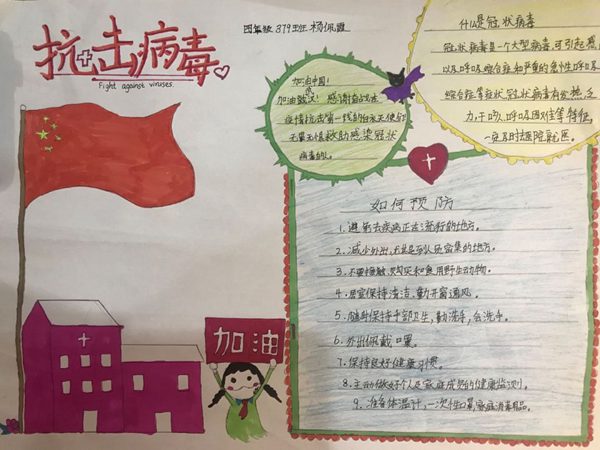 抗击病毒
Fight against viruses.
四年级 379班 杨佩霞
加油中国!
加油武汉! 感谢奋战在
疫情抗击第一线的白衣天使们
无畏无惧救助感染冠状
病毒的人。
什么是冠状病毒
冠状病毒是一个大型病毒,可引起感
以及呼吸综合症和严重的急性呼吸
综合症等症状冠状病毒有发热、乏
力、干咳、呼吸困难等特征,
一定及时去医院就医。
如何预防
1.避免去疾病正在流行的地方。
2.减少外出,尤其是人员密集的地方。
3.不要接触、购买和食用野生动物。
4.居室保持清洁,勤开窗通风。
5.随时保持手部卫生,勤洗手,会洗手。
6.外出佩戴口罩。
7.保持良好健康习惯。
8.主动做好个人及家庭成员的健康监测。
9.准备体温计,一次性口罩,家庭消毒用品。
加油